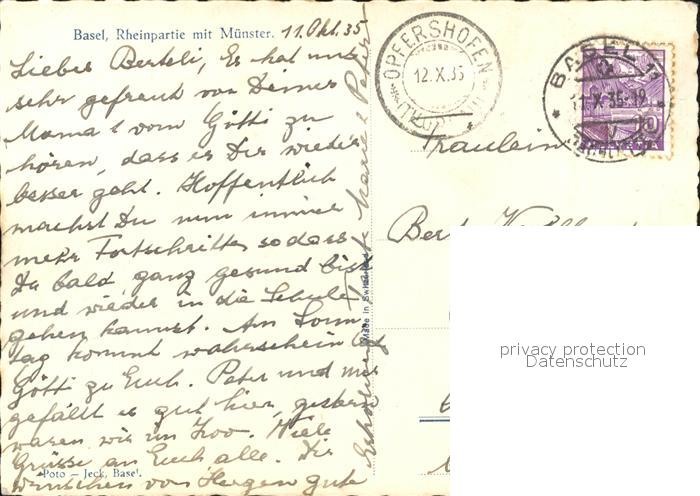 Basel, Rheinpartie mit Münster. 11. Okt. 35
Liebes Berteli, Es hat uns
sehr gefreut von Deiner
Mama & vom Götti zu
hören, dass es Dir wieder
besser geht. Hoffentlich
machst Du nun immer
mehr Fortschritte, so dass
Du bald ganz gesund bist
und wieder in die Schule
gehen kannst. Am Sonn-
tag kommt wahrscheinlich
Götti zu Euch. Peter und mir
gefällt es gut hier, gestern
waren wir im Zoo. Viele
Grüsse an Euch alle. Dir
wünschen von Herzen gute
Erholung Tante Marie & Peter
Foto – Jeck, Basel.
Made in Switzerland
OPFERSHOFEN
12.X.35
BASEL
11.X.35-19
Fräulein
privacy protection
Datenschutz